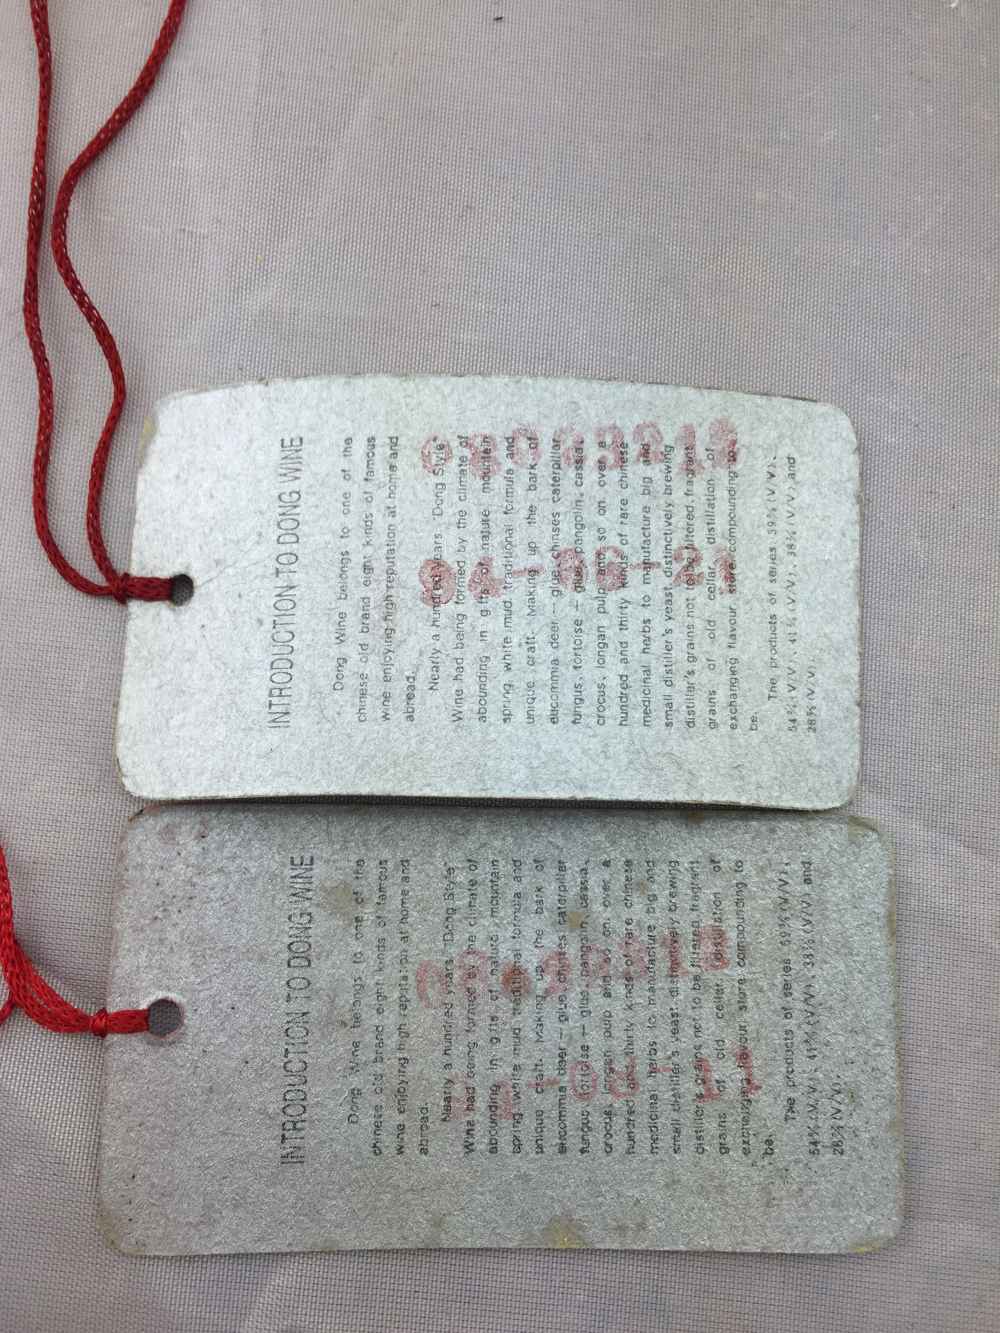 INTRODUCTION TO DONG WINE
Dong Wine belongs to one of the
chinese old brand eight kinds of famous
wine enjoying high reputation at home and
abread.
Nearly a hundred years "Dong Style"
Wine had being formed by the climate of
abounding in gifts of nature, mountain
spring, white mud, traditional formula and
unique craft. Making up the bark of
eucommia deer — glue, chinses caterpillar
fungus, tortoise — glue, pangolin, cassia,
crocus, longan pulp and so on over a
hundred and thirty kinds of rare chinese
medicinal herbs to manufacture big and
small distiller's yeast distinctively brewing
distiller's grains not to be filtered, fragrant
grains of old cellar, distillation of
exchanging flavour, store, compounding to
be.
The products of series: 59%(V/V),
54%(V/V), 41%(V/V), 38%(V/V) and
28%(V/V).
INTRODUCTION TO DONG WINE
Dong Wine belongs to one of the
chinese old brand eight kinds of famous
wine enjoying high reputation at home and
abread.
Nearly a hundred years "Dong Style"
Wine had being formed by the climate of
abounding in gifts of nature, mountain
spring, white mud, traditional formula and
unique craft. Making up the bark of
eucommia deer — glue, chinses caterpillar
fungus, tortoise — glue, pangolin, cassia,
crocus, longan pulp and so on over a
hundred and thirty kinds of rare chinese
medicinal herbs to manufacture big and
small distiller's yeast distinctively brewing
distiller's grains not to be filtered, fragrant
grains of old cellar, distillation of
exchanging flavour, store, compounding to
be.
The products of series: 59%(V/V),
54%(V/V), 41%(V/V), 38%(V/V) and
28%(V/V).